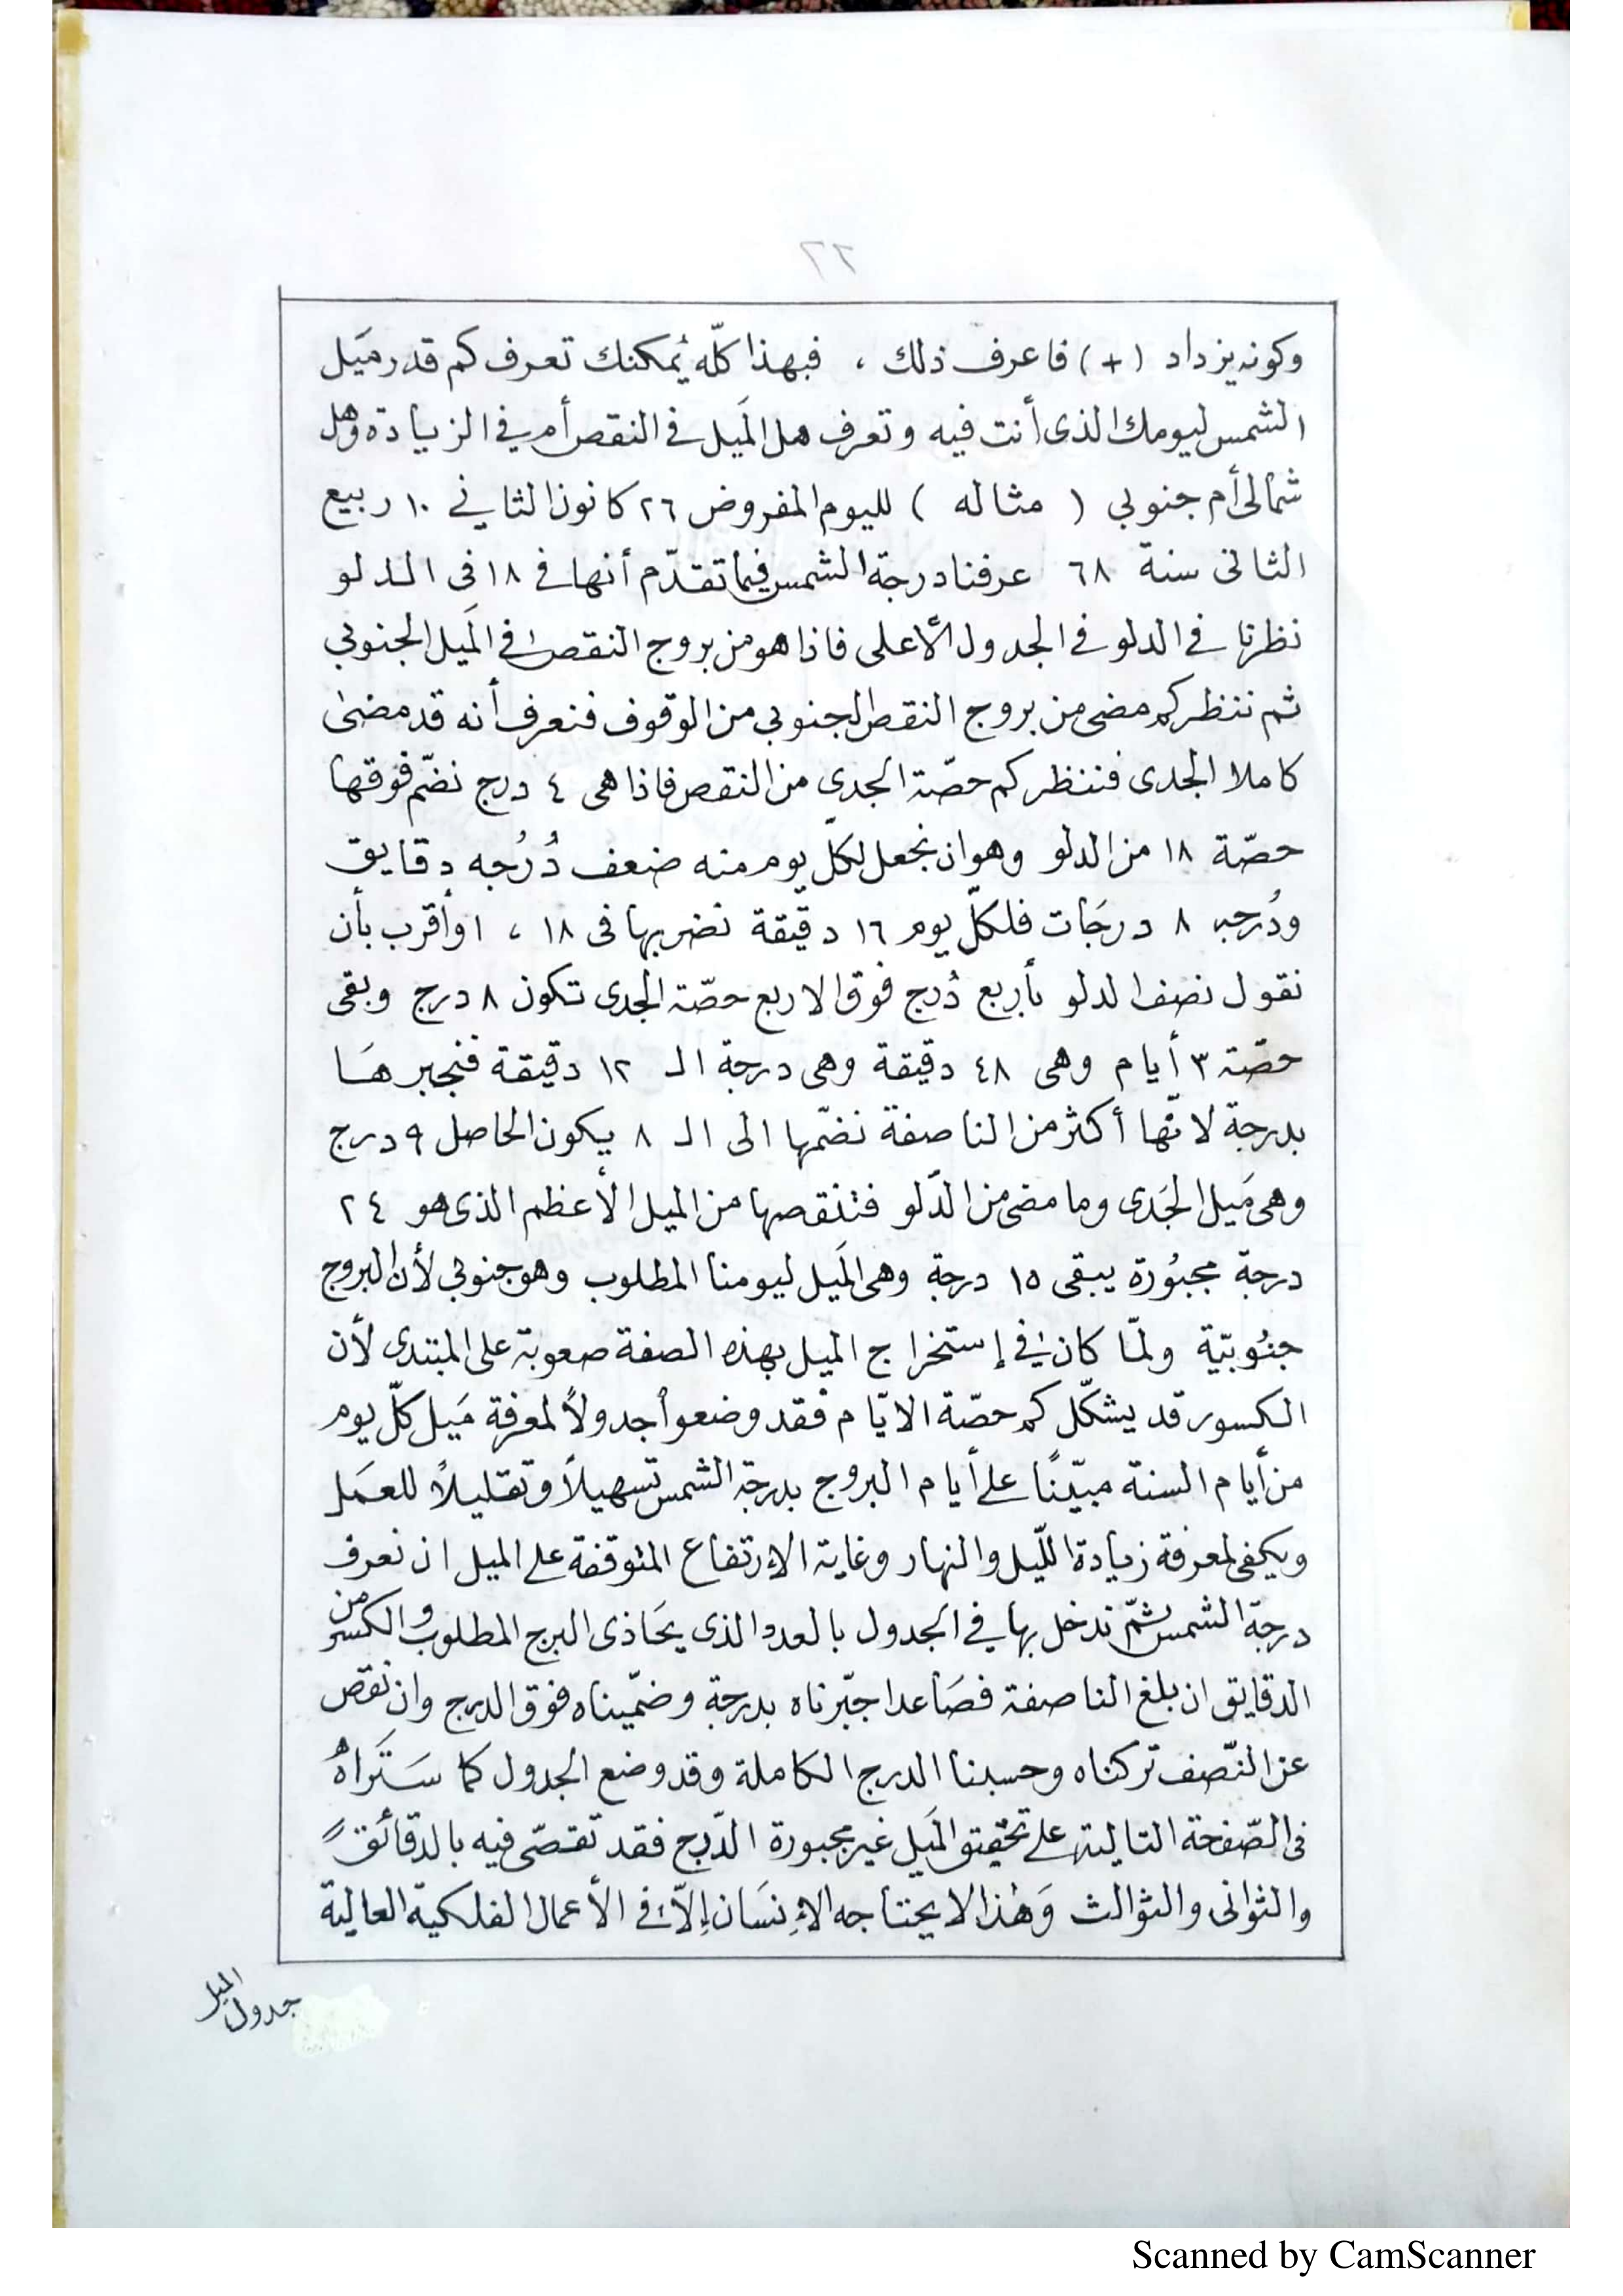 ٢٦
وكونه يزداد (+) فاعرف ذلك ، فبهذا كلّه يُمكنك تعرف كم قدر مَيل
الشمس ليومك الذى أنت فيه وتعرف هل المَيل فى النقص أم في الزيادة وهل
شمالى أم جنوبي ( مثاله ) لليوم المفروض ٢٦ كانون الثاني ١٠ ربيع
الثانى سنة ٦٨ عرفنا درجة الشمس فيما تقدّم أنها فى ١٨ فى الدلو
نظرنا فى الدلو فى الجدول الأعلى فاذا هو من بروج النقص فى المَيل الجنوبي
ثم ننظر كم مضى من بروج النقص الجنوبي من الوقوف فنعرف أنه قد مضىٰ
كاملا الجدى فننظر كم حصّة الجدي من النقص فاذا هى ٤ درج نضّم فوقها
حصّة ١٨ من الدلو وهو ان نجعل لكلّ يوم منه ضعف دُرُجه دقايق
ودُرجه ٨ درجَات فلكلّ يوم ١٦ دقيقة نضربها فى ١٨ ، او أقرب بأن
نقول نصف الدلو بأربع دُرج فوق الاربع حصّة الجدى تكون ٨ درج وبقى
حصّة ٣ أيام وهى ٤٨ دقيقة وهى درجة الـ ١٢ دقيقة فنجبرهَا
بدرجة لانّها أكثر من الناصفة نضمّها الى الـ ٨ يكون الحاصل ٩ درج
وهى مَيل الجَدى وما مضى من الدّلو فننقصها من الميل الأعظم الذى هو ٢٤
درجة مجبُورة يبقى ١٥ درجة وهى المَيل ليومنا المطلوب وهو جنوبي لأن البروج
جنُوبيّة ولمّا كان في إستخراج الميل بهذه الصفة صعوبة على المبتدى لأن
الكسور قد يشكّل كم حصّة الايّام فقد وضعوا جدولاً لمعرفة مَيل كلّ يوم
من أيام السنة مبيّنًا على أيام البروج بدرجة الشمس تسهيلاً وتقليلاً للعمَل
ويكفى لمعرفة زيادة اللّيل والنهار وغاية الإرتفاع المتوقفة على الميل ان نعرف
درجة الشمس ثمّ ندخل بها في الجدول بالعدد الذى يحَاذى البرج المطلوب والكسر من
الدقايق ان بلغ الناصفة فصَاعدا جبّرناه بدرجة وضمّيناه فوق الدرج وان نقص
عن النّصف تركناه وحسبنا الدرج الكاملة وقد وضع الجدول كما سَتَراهُ
فى الصّفحة التالية على تحقيق المَيل غير مجبورة الدّرج فقد تقصّى فيه بالدقائق
والثوانى والثوالث وَهٰذا لا يحتاجه الإنسَان إلاّ فى الأعمال الفلكية العالية
جدول الميل
Scanned by CamScanner